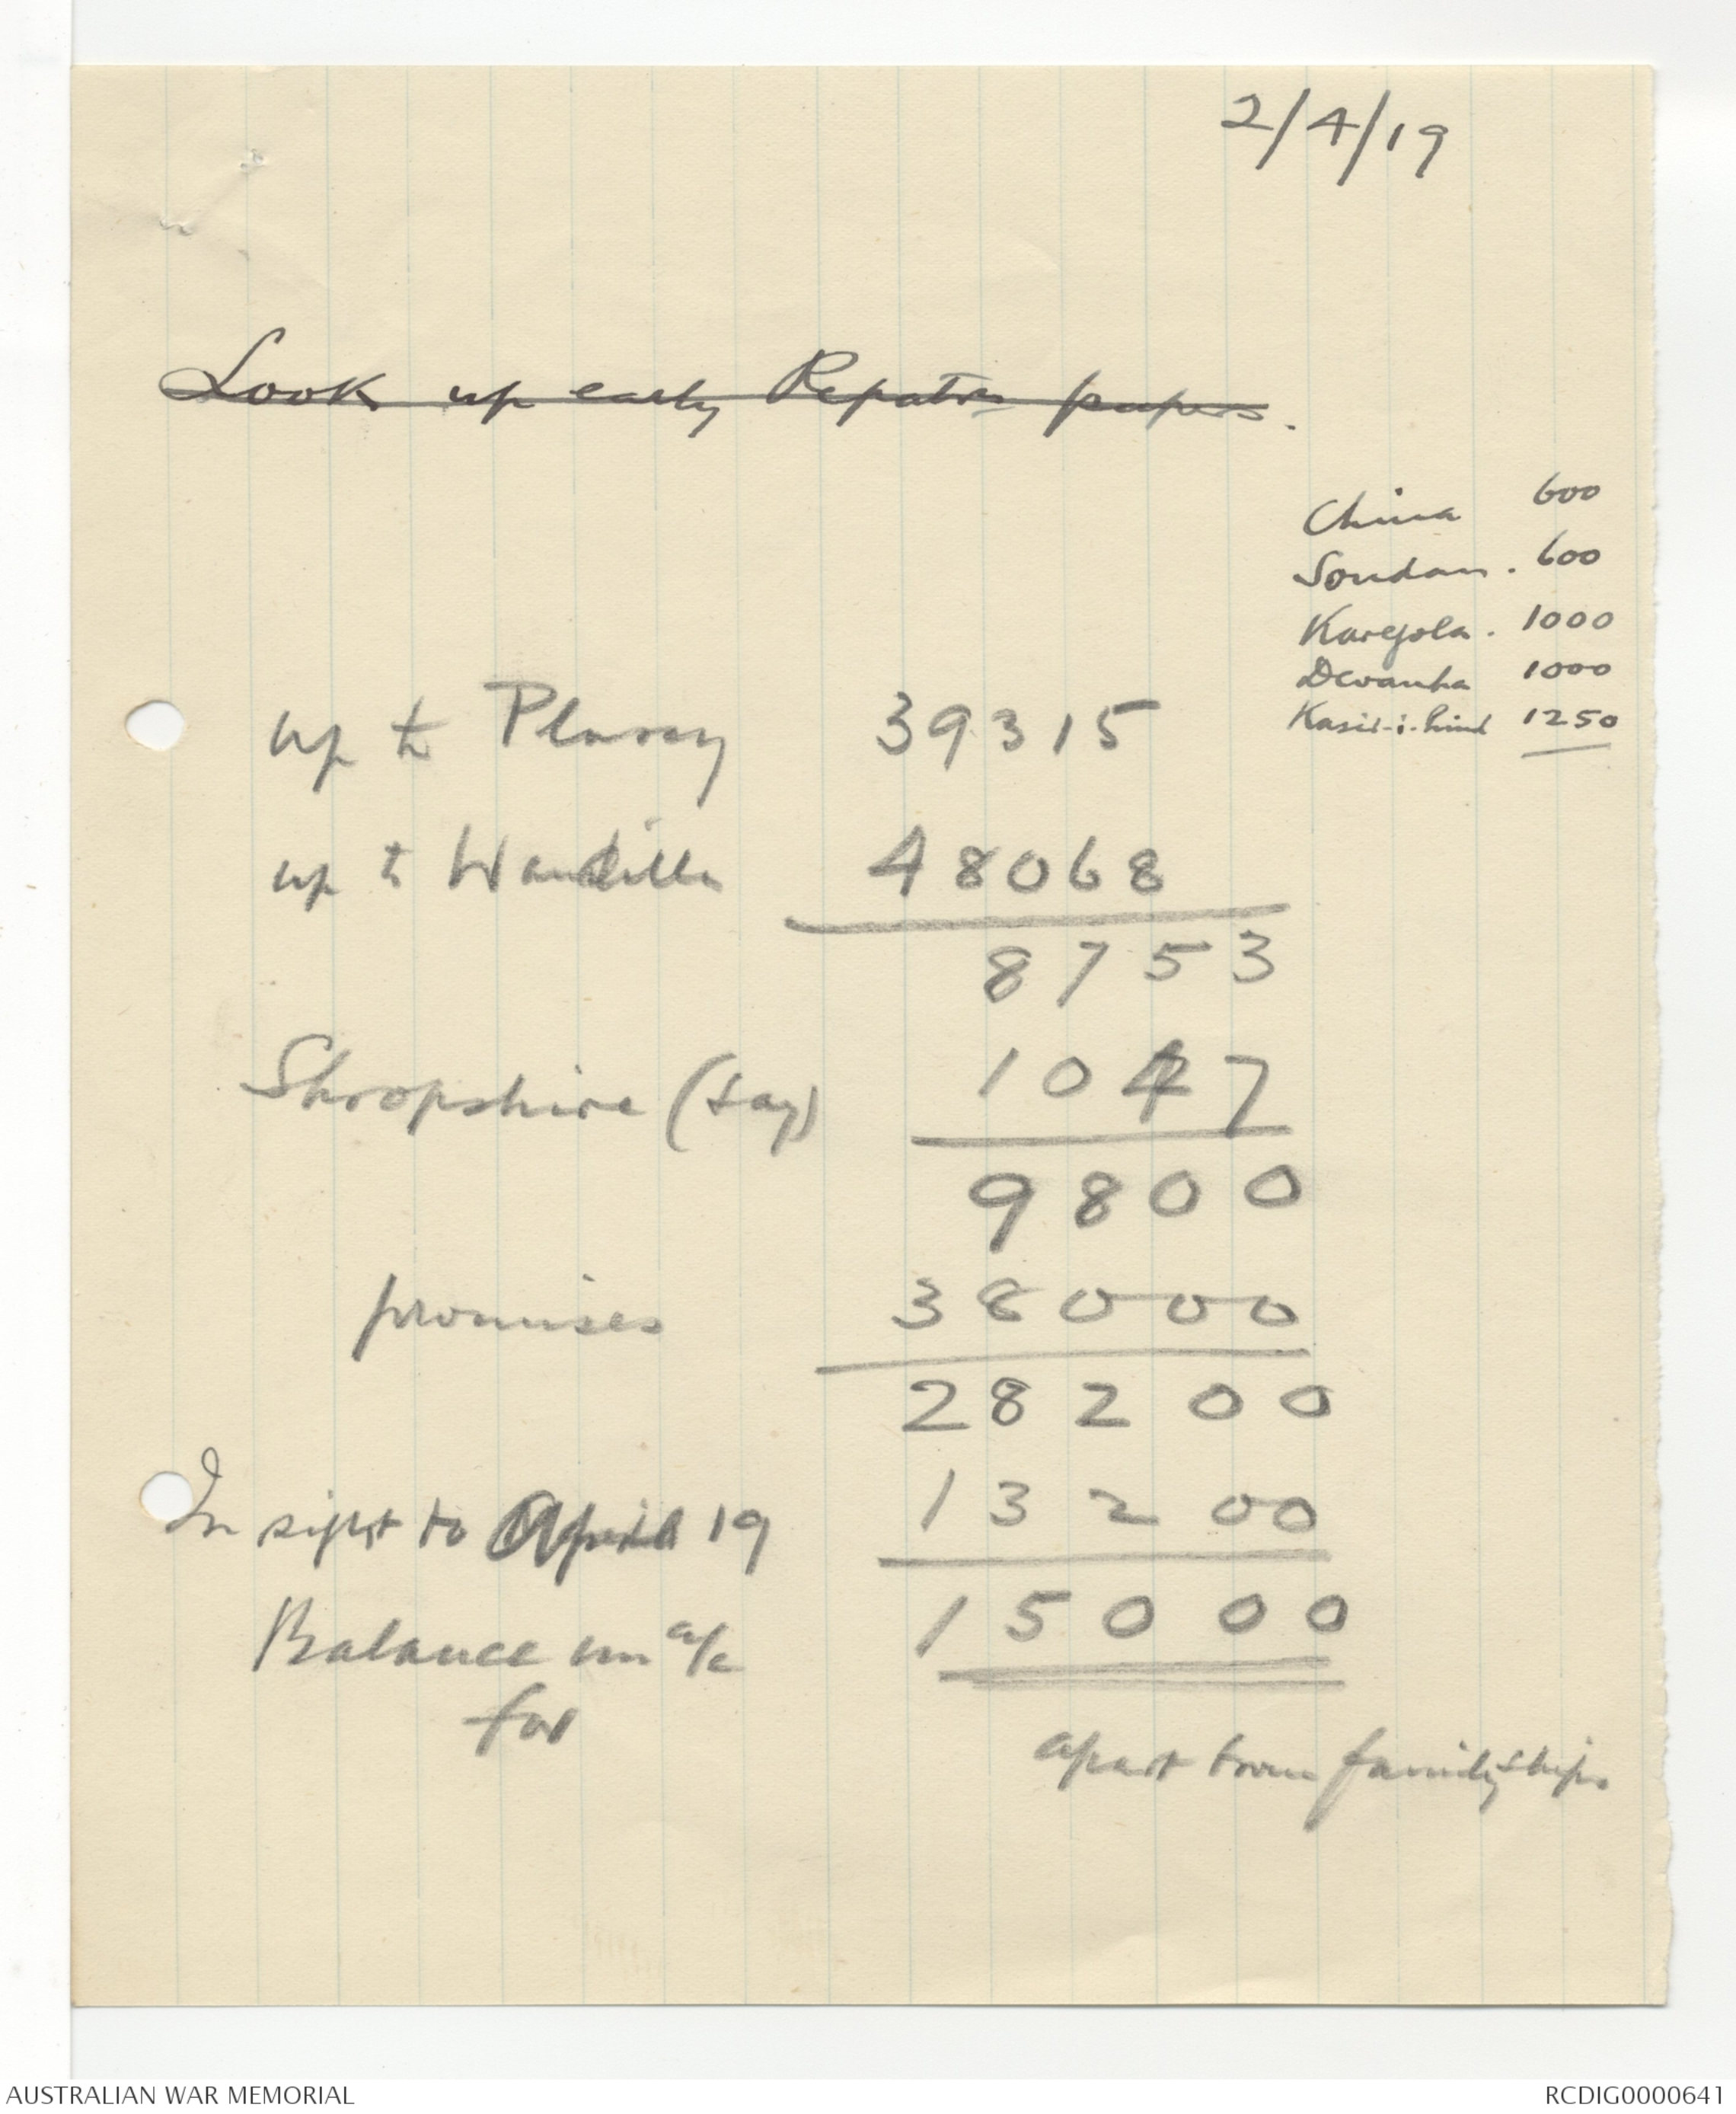 2/4/19
Look up early Repatn papers.
China 600
Soudan. 600
Karegola. 1000
Devanha 1000
Kasir-i-hind 1250
up to Plassy 39315
up to Wandilla 48068
8753
Shropshire (say) 1047
9800
promises 38000
28200
In sight to April 19 13200
Balance un a/c for 15000
apart from family ships
AUSTRALIAN WAR MEMORIAL
RCDIG0000641